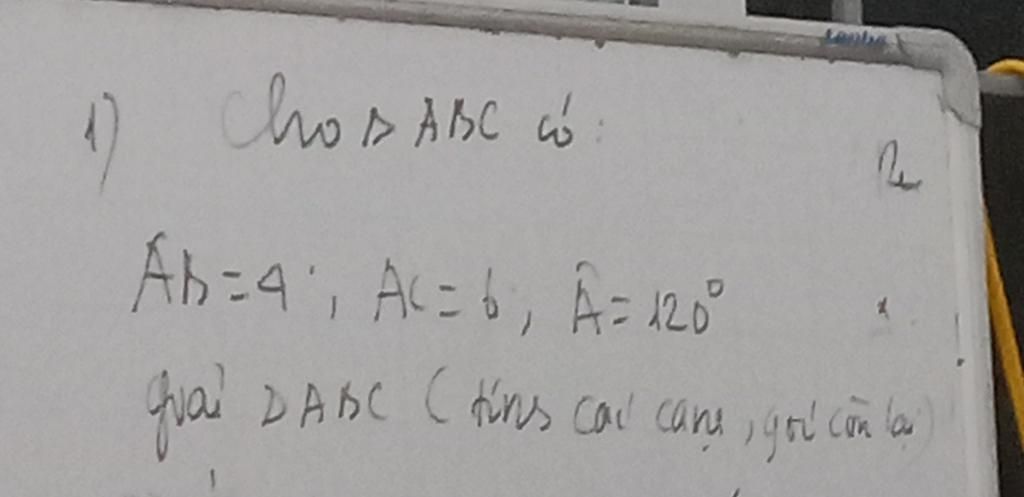 1) Cho Δ ABC có:
AB = 4, AC = 6, Â = 120°
giải Δ ABC (tính các cạnh, góc còn lại)